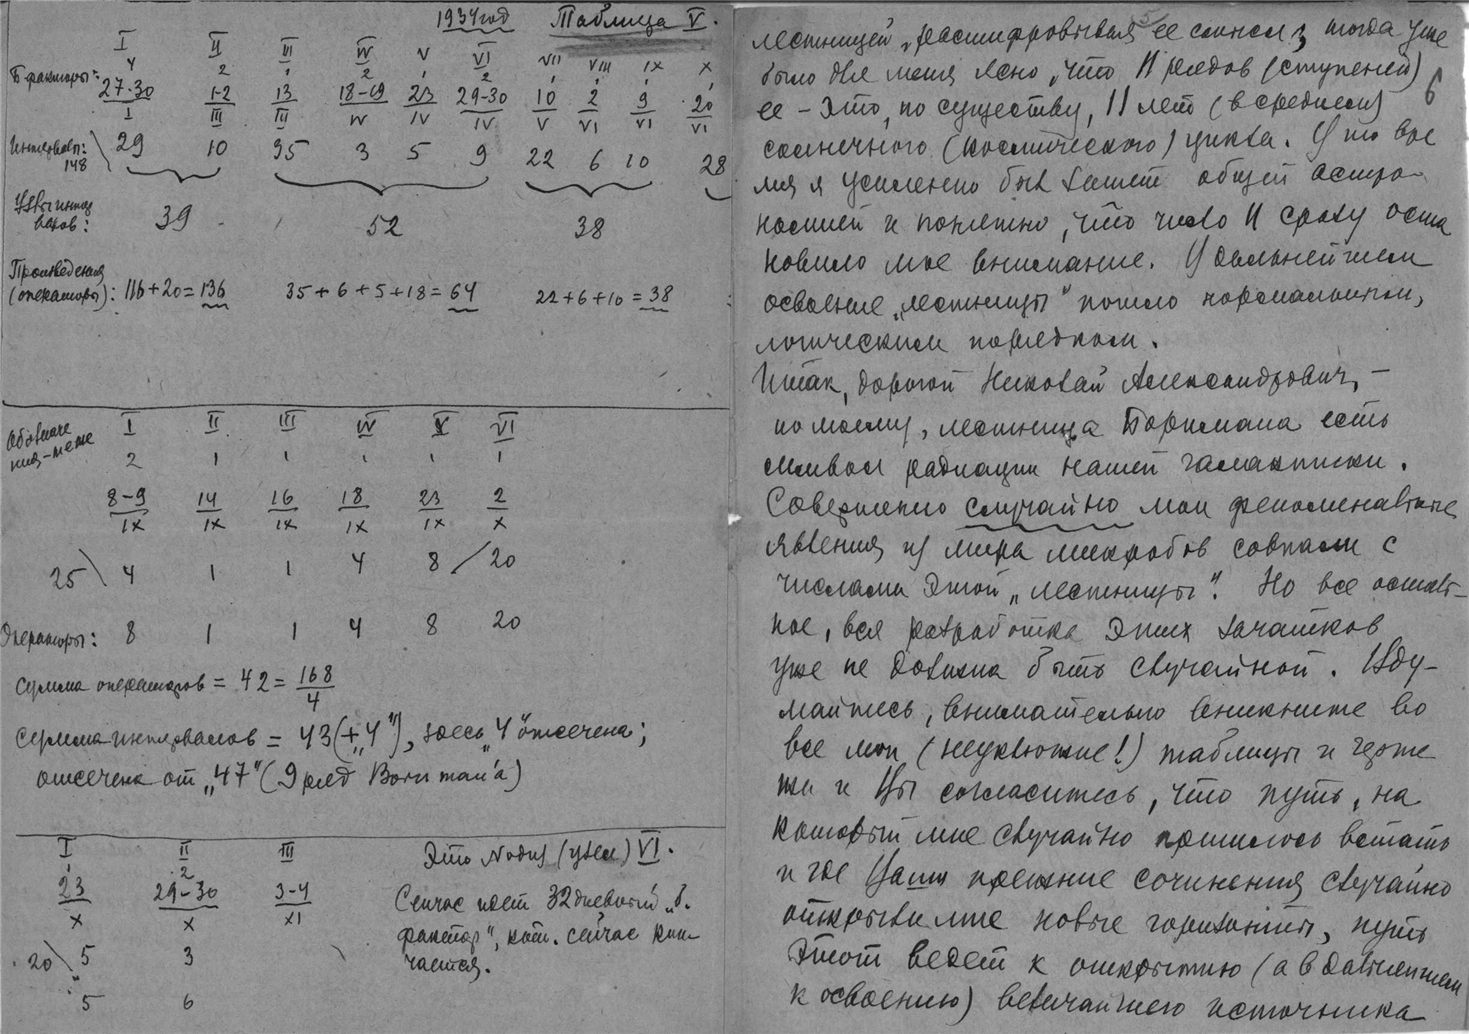 1934 год Таблица V.
I II III IV V VI VII VIII IX X
Б факторы: 4 2 1 2 1 2 1 1 1 1
27-30 1-2 13 18-19 23 29-30 10 2 9 20
I III III IV IV IV V VI VI VI
Интервалы: 148 29 10 35 3 5 9 22 6 10 28
Узлы интервалов: 39 52 38
Произведения
(операторы): 116+20=136 35+6+5+18=64 22+6+10=38
Обозначения-же I II III IV V VI
2 1 1 1 1 1
8-9 14 16 18 23 2
IX IX IX IX IX X
25 4 1 1 4 8 20
Операторы: 8 1 1 4 8 20
Сумма операторов = 42 = 168/4
Сумма интервалов = 43 (+„4"), здесь „4" отсечена;
отсечена от „47" (9 ряд Borrman'a)
I II III Это Nodus (узел) VI.
1 2
23 29-30 3-4
X X XI
20 5 3
5 6
Сейчас идет 32 дневный „б.
фактор", кот. сейчас кон-
чается.
6
лестницей, расшифровывая ее смысл, тогда уже
было для меня ясно, что 11 рядов (ступеней)
ее – это, по существу, 11 лет (в среднем)
солнечного (космического) цикла. В то вре
мя я усиленно был занят общей астро-
номией и понятно, что число 11 сразу оста
новило мое внимание. В дальнейшем
освоение „лестницы" пошло нормальным,
логическим порядком.
Итак, дорогой Николай Александрович, –
по моему, лестница Боримана есть
символ радиации нашей галактики.
Совершенно случайно мои феноменальные
явления из мира микробов совпали с
числами этой „лестницы". Но все осталь-
ное, вся разработка этих зачатков
уже не должна быть случайной. Вду-
майтесь, внимательно вникните во
все мои (неуклюжие!) таблицы и черте
жи и Вы согласитесь, что путь, на
который мне случайно пришлось встать
и где Ваши прежние сочинения случайно
открыли мне новые горизонты, путь
этот ведет к открытию (а в дальнейшем
к освоению) величайшего источника